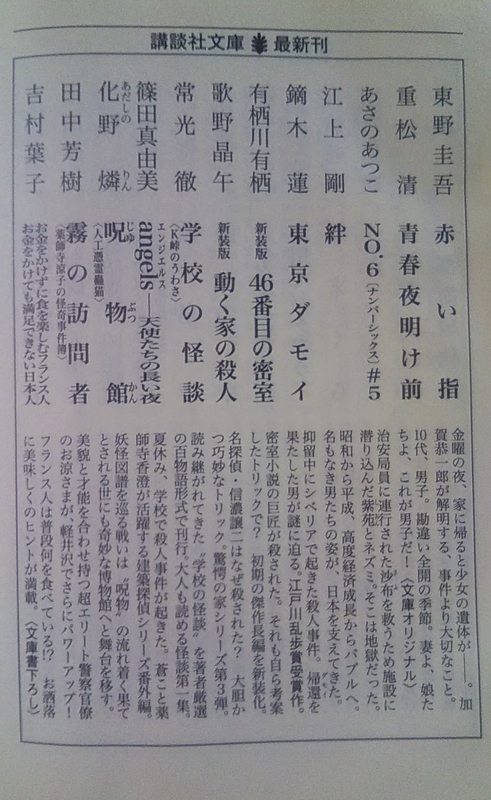 講談社文庫 最新刊
東野圭吾 赤い指
金曜の夜、家に帰ると少女の遺体が――。加
賀恭一郎が解明する、事件より大切なこと。
重松清 青春夜明け前
10代、男子。勘違い全開の季節。妻よ、娘た
ちよ、これが男子だ！〈文庫オリジナル〉
あさのあつこ NO.6〔ナンバーシックス〕#5
治安局員に連行された沙布を救うため施設に
潜り込んだ紫苑とネズミ。そこは地獄だった。
江上剛 絆
昭和から平成、高度経済成長からバブルへ。
名もなき男たちの姿が、日本を支えてきた。
鏑木蓮 東京ダモイ
抑留中にシベリアで起きた殺人事件。帰還を
果たした男が謎に迫る。江戸川乱歩賞受賞作。
有栖川有栖 新装版 46番目の密室
密室小説の巨匠が殺された。それも自ら考案
したトリックで？ 初期の傑作長編を新装化。
歌野晶午 新装版 動く家の殺人
名探偵・信濃譲二はなぜ殺された？ 大胆か
つ巧妙なトリック。驚愕の家シリーズ第3弾。
常光徹 学校の怪談〈K峠のうわさ〉
読み継がれてきた“学校の怪談”を著者厳選
の百物語形式で刊行。大人も読める怪談第一集。
篠田真由美 angels エンジェルス――天使たちの長い夜
夏休み、学校で殺人事件が起きた。蒼こと薬
師寺香澄が活躍する建築探偵シリーズ番外編。
化野燐 あだしの りん 呪物館 じゅぶつかん〈人工憑霊蠱猫〉
妖怪図譜を巡る戦いは“呪物”の流れ着く果て
とされる世にも奇妙な博物館へと舞台を移す。
田中芳樹 霧の訪問者〈薬師寺涼子の怪奇事件簿〉
美貌と才能を合わせ持つ超エリート警察官僚
のお涼さまが、軽井沢でさらにパワーアップ！
吉村葉子 お金をかけずに食を楽しむフランス人
お金をかけても満足できない日本人
フランス人は普段何を食べている!? お洒落
に美味しくのヒントが満載。〈文庫書下ろし〉